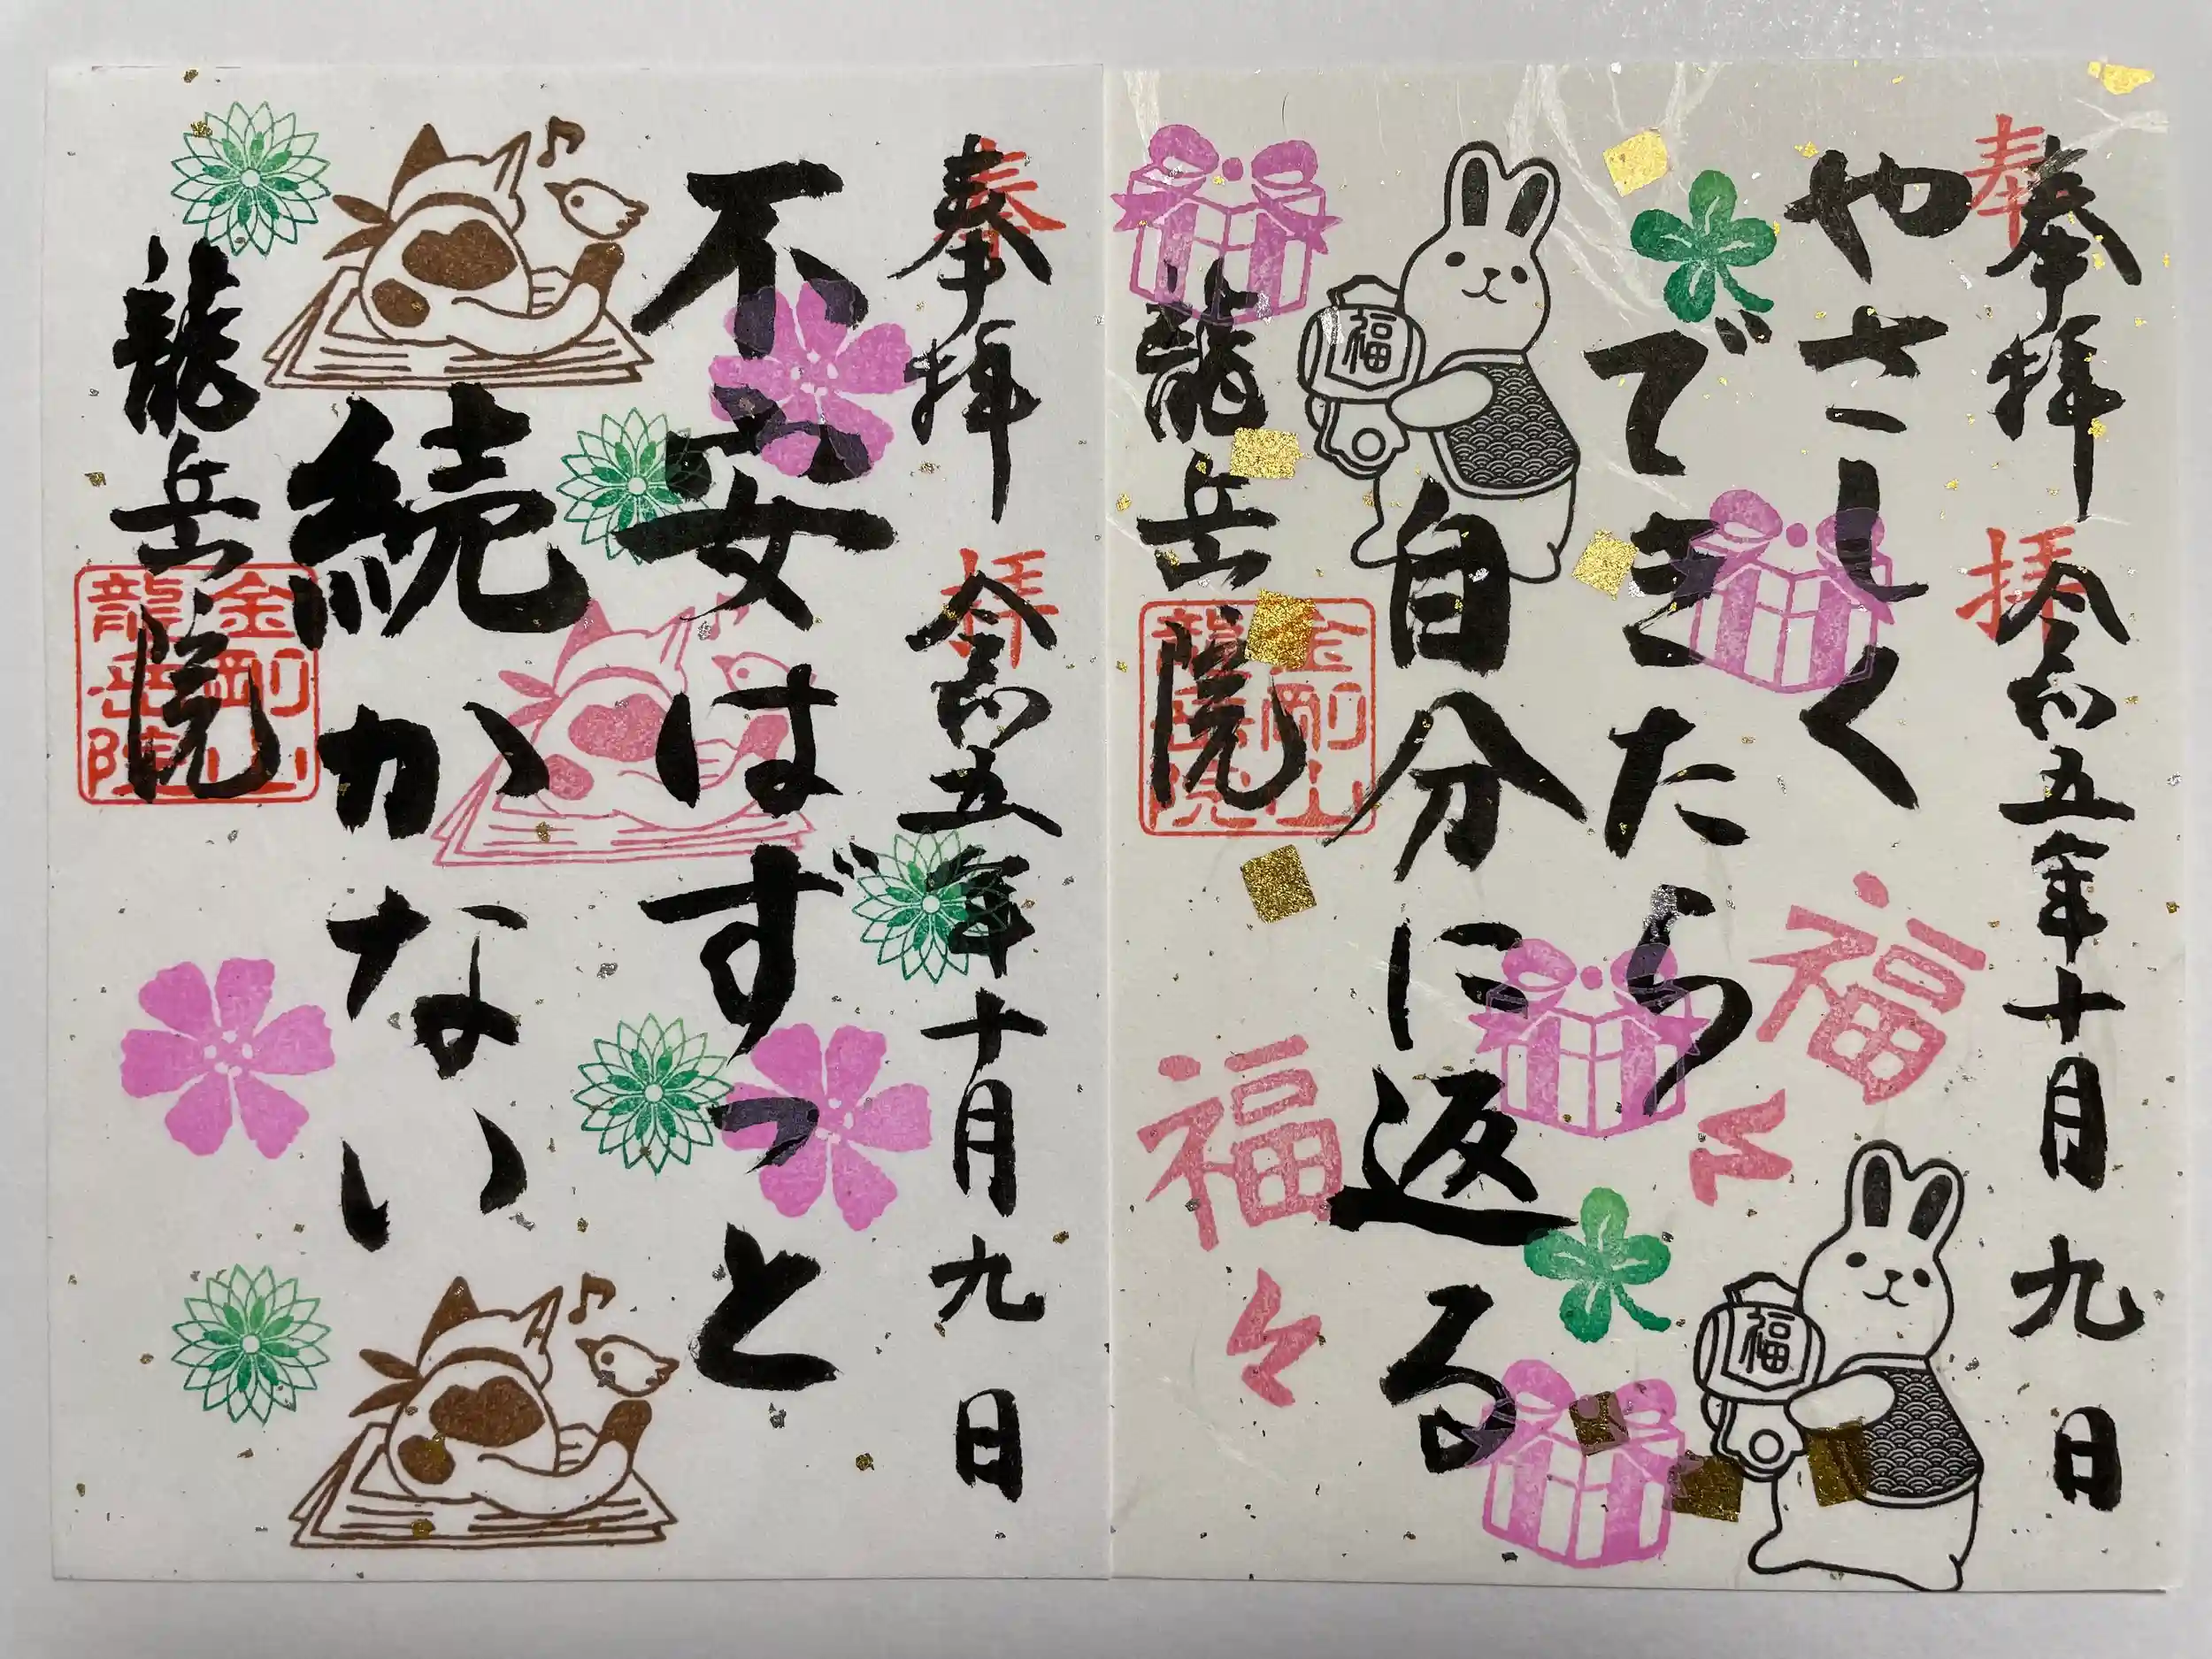 奉拝 令和五年十月九日
奉拝
やさしく
できたら
自分に返る
福
福
福々
福々
龍岳院
金剛山
龍岳院
奉拝 令和五年十月九日
奉拝
不安はずっと
続かない
龍岳院
金剛山
龍岳院